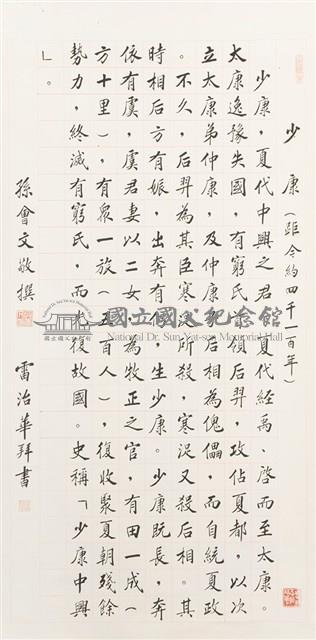 少康（距今約四千一百年）
少康，夏代中興之君。夏代經禹、啓而至太康。
太康逸豫失國，有窮氏首領后羿，攻佔夏都，以次
立太康弟仲康，及仲康子后相為傀儡，而自統夏政
。不久，后羿為其臣寒浞所殺，寒浞又殺后相。其
時相后方有娠，出奔有仍，生少康。少康既長，奔
依有虞，虞君妻以二女，為牧正之官，有田一成（
方十里），有眾一旅（五百人），復收聚夏朝殘餘
勢力，終滅有窮氏，而光復故國。史稱「少康中興
」。
孫會文敬撰
雷治華拜書
國立國父紀念館
National Dr. Sun Yat-sen Memorial Hall